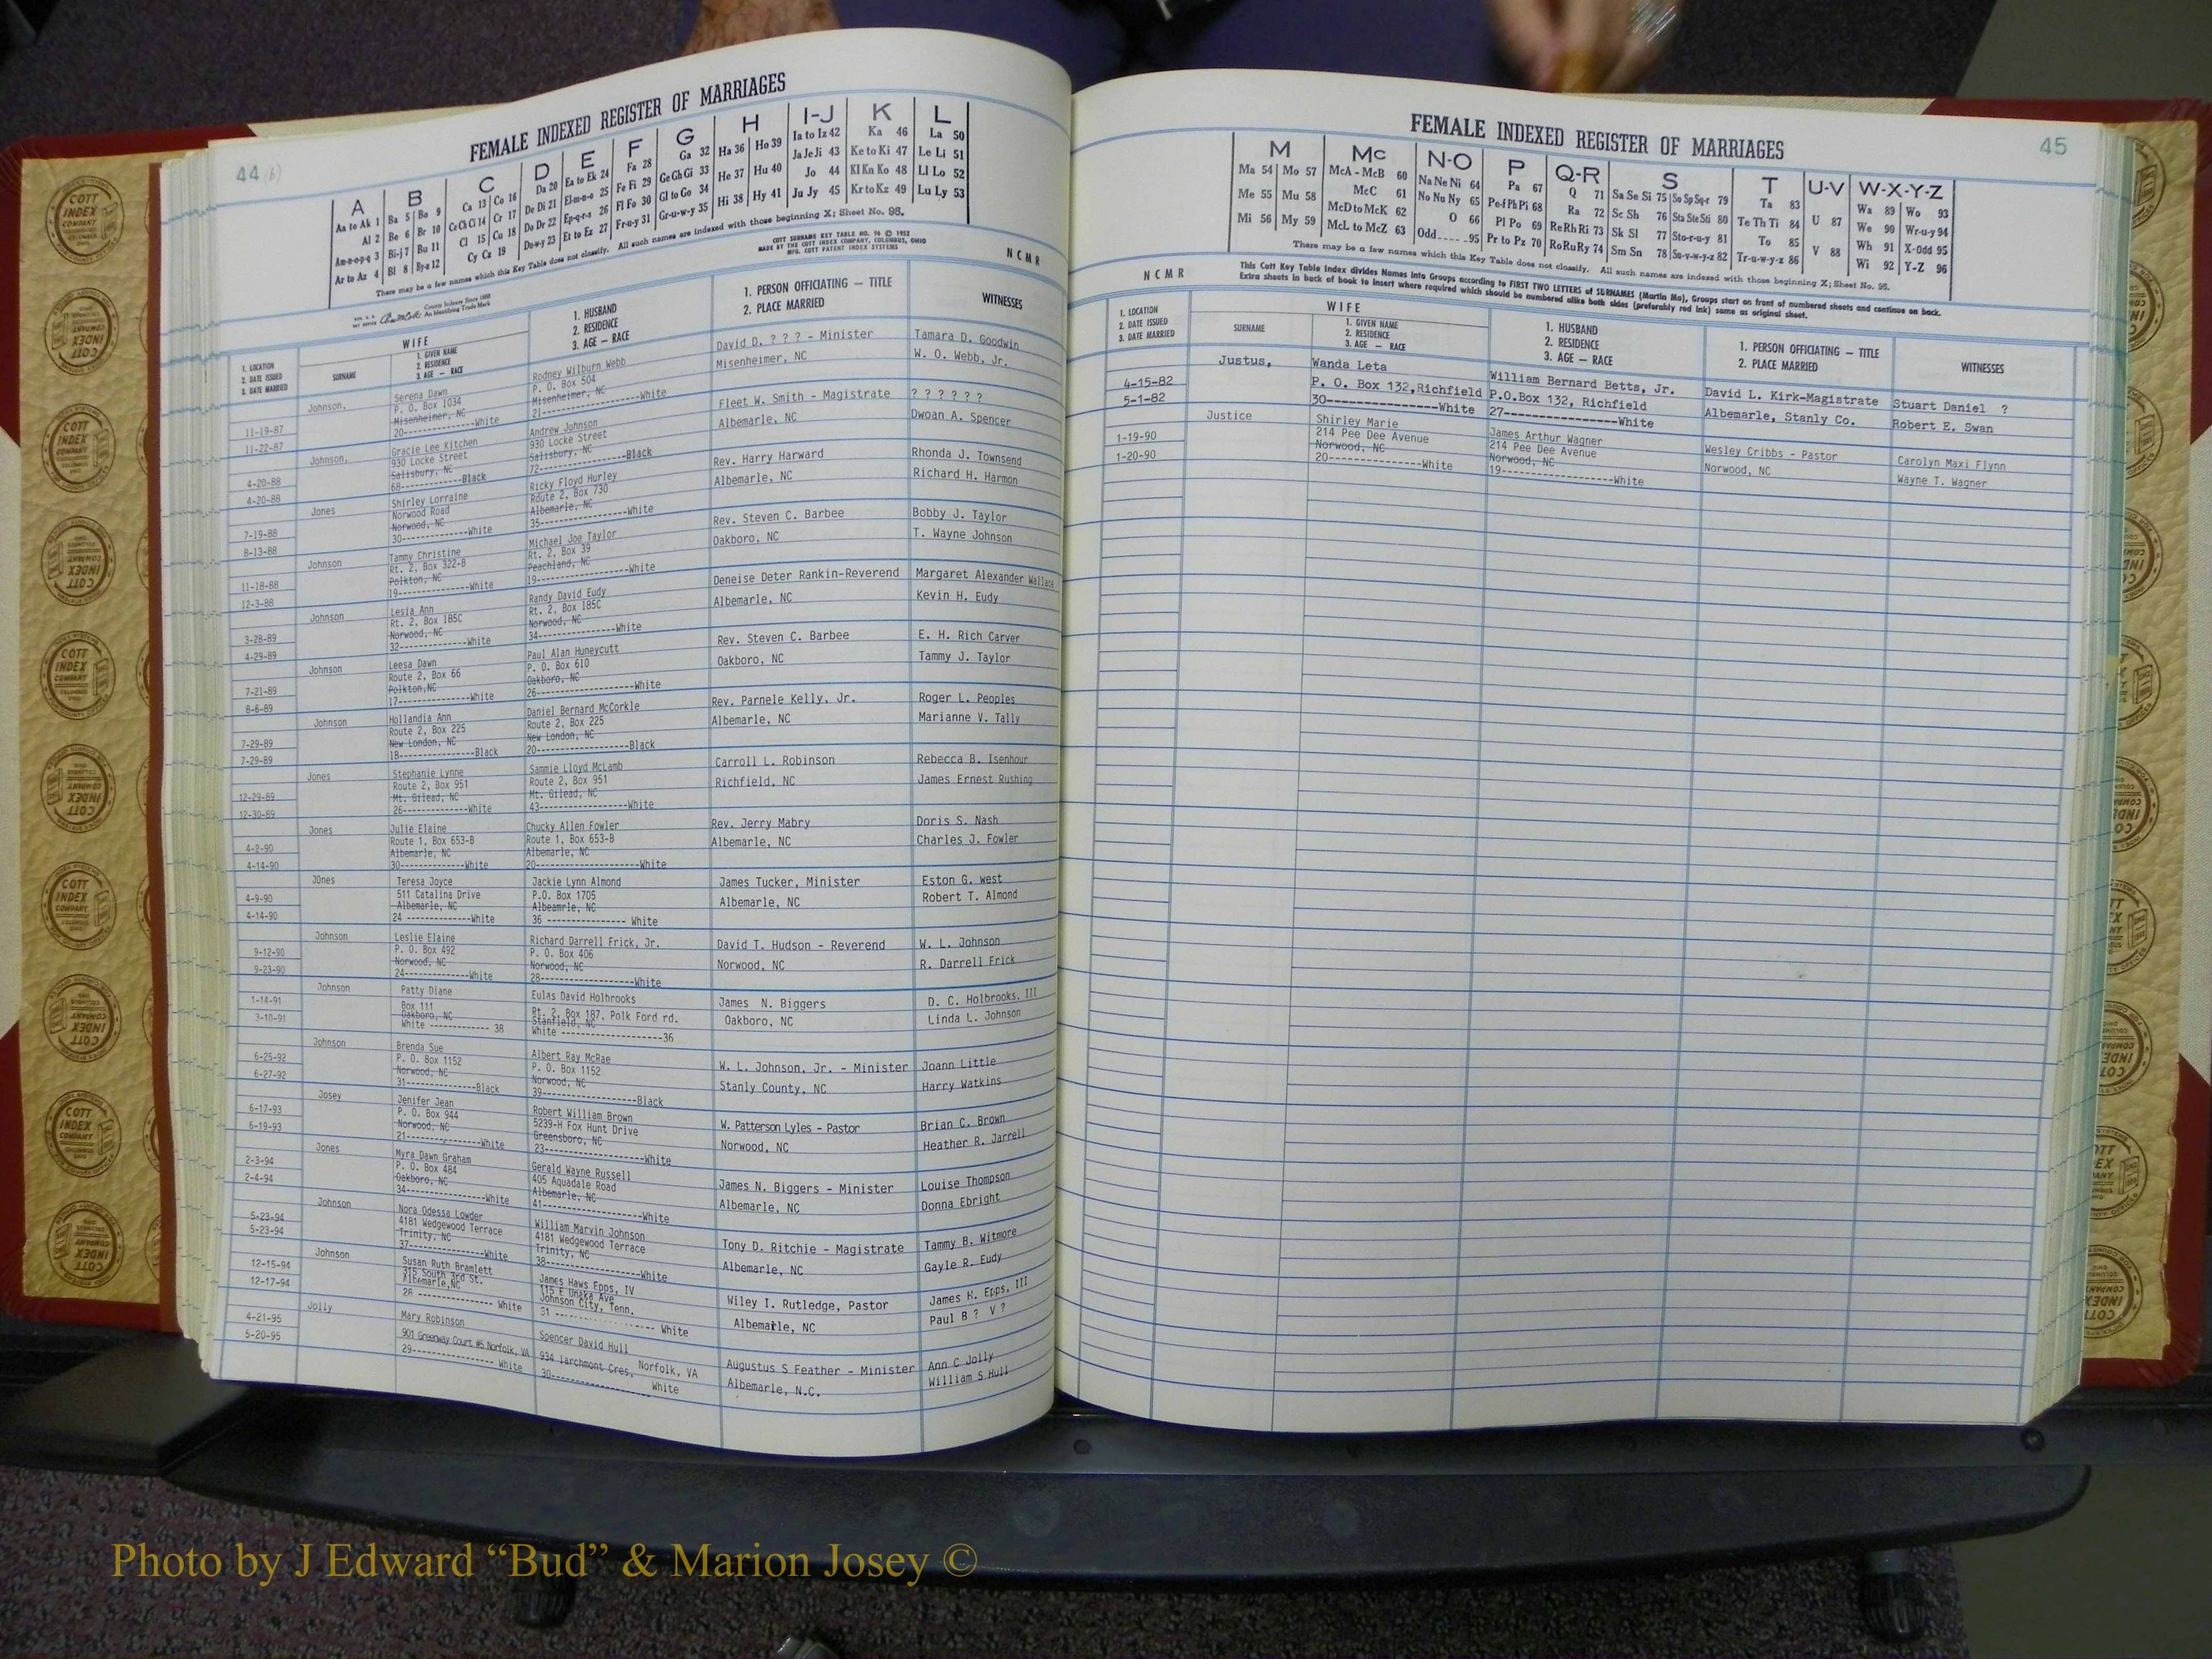 FEMALE INDEXED REGISTER OF MARRIAGES
44 (b)
A B C D E F G H I-J K L
Aa to Ak 1 Ba 5 Bo 9 Ca 13 Co 16 Da 20 Ea to Ek 24 Fa 28 Ga 32 Ha 36 Ho 39 Ia to Iz 42 Ka 46 La 50
Al 2 Be 6 Br 10 Ce Ch Ci 14 Cr 17 De Di 21 El-m-n-o 25 Fe Fi 29 Ge Gh Gi 33 He 37 Hu 40 Ja Je Ji 43 Ke to Ki 47 Le Li 51
Am-n-o-p-q 3 Bi-j 7 Bu 11 Cl 15 Cu 18 Do Dr 22 Ep-q-r-s 26 Fl Fo 30 Gl to Go 34 Hi 38 Hy 41 Jo 44 Kl Kn Ko 48 Ll Lo 52
Ar to Az 4 Bl 8 By-z 12 Cy Cz 19 Du-w-y 23 Et to Ez 27 Fr-u-y 31 Gr-u-w-y 35 Ju Jy 45 Kr to Kz 49 Lu Ly 53
There may be a few names which this Key Table does not classify. All such names are indexed with those beginning X; Sheet No. 95.
COTT SURNAME KEY TABLE NO. 96 © 1952
MADE BY THE COTT INDEX COMPANY, COLUMBUS, OHIO
MFG. COTT PATENT INDEX SYSTEMS
County Indexers Since 1888
An Identifying Trade Mark
N C M R
1. LOCATION
2. DATE ISSUED
3. DATE MARRIED
WIFE
SURNAME
1. GIVEN NAME
2. RESIDENCE
3. AGE — RACE
1. HUSBAND
2. RESIDENCE
3. AGE — RACE
1. PERSON OFFICIATING — TITLE
2. PLACE MARRIED
WITNESSES
11-19-87
11-22-87
Johnson,
Serena Dawn
P. O. Box 1034
Misenheimer, NC
20------------White
Rodney Wilburn Webb
P. O. Box 504
Misenheimer, NC
21----------------White
David D. ? ? ? - Minister
Misenheimer, NC
Tamara D. Goodwin
W. O. Webb, Jr.
4-20-88
4-20-88
Johnson,
Gracie Lee Kitchen
930 Locke Street
Salisbury, NC
68------------Black
Andrew Johnson
930 Locke Street
Salisbury, NC
72--------------Black
Fleet W. Smith - Magistrate
Albemarle, NC
? ? ? ? ? ?
Dwoan A. Spencer
7-19-88
8-13-88
Jones
Shirley Lorraine
Norwood Road
Norwood, NC
30-------------White
Ricky Floyd Hurley
Route 2, Box 730
Albemarle, NC
35--------------White
Rev. Harry Harward
Albemarle, NC
Rhonda J. Townsend
Richard H. Harmon
11-18-88
12-3-88
Johnson
Tammy Christine
Rt. 2, Box 322-B
Polkton, NC
19-------------White
Michael Joe Taylor
Rt. 2, Box 39
Peachland, NC
19--------------White
Rev. Steven C. Barbee
Oakboro, NC
Bobby J. Taylor
T. Wayne Johnson
3-28-89
4-29-89
Johnson
Lesia Ann
Rt. 2, Box 185C
Norwood, NC
32------------White
Randy David Eudy
Rt. 2, Box 185C
Norwood, NC
34-------------White
Deneise Deter Rankin-Reverend
Albemarle, NC
Margaret Alexander Wallace
Kevin H. Eudy
7-21-89
8-6-89
Johnson
Leesa Dawn
Route 2, Box 66
Polkton,NC
17-------------White
Paul Alan Huneycutt
P. O. Box 610
Oakboro, NC
26----------------White
Rev. Steven C. Barbee
Oakboro, NC
E. H. Rich Carver
Tammy J. Taylor
7-29-89
7-29-89
Johnson
Hollandia Ann
Route 2, Box 225
New London, NC
18--------------Black
Daniel Bernard McCorkle
Route 2, Box 225
New London, NC
20---------------Black
Rev. Parnele Kelly, Jr.
Albemarle, NC
Roger L. Peoples
Marianne V. Tally
12-29-89
12-30-89
Jones
Stephanie Lynne
Route 2, Box 951
Mt. Gilead, NC
26-------------White
Sammie Lloyd McLamb
Route 2, Box 951
Mt. Gilead, NC
43---------------White
Carroll L. Robinson
Richfield, NC
Rebecca B. Isenhour
James Ernest Rushing
4-2-90
4-14-90
Jones
Julie Elaine
Route 1, Box 653-B
Albemarle, NC
30-------------White
Chucky Allen Fowler
Route 1, Box 653-B
Albemarle, NC
20-----------------White
Rev. Jerry Mabry
Albemarle, NC
Doris S. Nash
Charles J. Fowler
4-9-90
4-14-90
JOnes
Teresa Joyce
511 Catalina Drive
Albemarle, NC
24 -------------White
Jackie Lynn Almond
P.O. Box 1705
Albeamrle, NC
36 -------------- White
James Tucker, Minister
Albemarle, NC
Eston G. west
Robert T. Almond
9-12-90
9-23-90
Johnson
Leslie Elaine
P. O. Box 492
Norwood, NC
24-------------White
Richard Darrell Frick, Jr.
P. O. Box 406
Norwood, NC
28----------------White
David T. Hudson - Reverend
Norwood, NC
W. L. Johnson
R. Darrell Frick
1-14-91
3-10-91
Johnson
Patty Diane
Box 111
Oakboro, NC
White ------------ 38
Eulas David Holbrooks
Rt. 2, Box 187, Polk Ford rd.
Stanfield, NC
White ------------------36
James N. Biggers
Oakboro, NC
D. C. Holbrooks, III
Linda L. Johnson
6-25-92
6-27-92
Johnson
Brenda Sue
P. O. Box 1152
Norwood, NC
31--------------Black
Albert Ray McRae
P. O. Box 1152
Norwood, NC
39----------------Black
W. L. Johnson, Jr. - Minister
Stanly County, NC
Joann Little
Harry Watkins
6-17-93
6-19-93
Josey
Jenifer Jean
P. O. Box 944
Norwood, NC
21--------------White
Robert William Brown
5239-H Fox Hunt Drive
Greensboro, NC
23----------------White
W. Patterson Lyles - Pastor
Norwood, NC
Brian C. Brown
Heather R. Jarrell
2-3-94
2-4-94
Jones
Myra Dawn Graham
P. O. Box 484
Oakboro, NC
34---------------White
Gerald Wayne Russell
405 Aquadale Road
Albemarle, NC
41----------------White
James N. Biggers - Minister
Albemarle, NC
Louise Thompson
Donna Ebright
5-23-94
5-23-94
Johnson
Nora Odessa Lowder
4181 Wedgewood Terrace
Trinity, NC
37--------------White
William Marvin Johnson
4181 Wedgewood Terrace
Trinity, NC
38---------------White
Tony D. Ritchie - Magistrate
Albemarle, NC
Tammy B. Witmore
Gayle R. Eudy
12-15-94
12-17-94
Johnson
Susan Ruth Bramlett
315 South 3rd St.
Albemarle,NC
28 -------------- White
James Haws Epps, IV
115 E Unaka Ave
Johnson City, Tenn.
31 --------------- White
Wiley I. Rutledge, Pastor
Albemarle, NC
James H. Epps, III
Paul B ? V ?
4-21-95
5-20-95
Jolly
Mary Robinson
901 Greenway Court #6 Norfolk, VA
29--------------- White
Spencer David Hull
934 larchmont Cres, Norfolk, VA
30------------------ White
Augustus S Feather - Minister
Albemarle, N.C.
Ann C Jolly
William S Hull
FEMALE INDEXED REGISTER OF MARRIAGES
45
M Mc N-O P Q-R S T U-V W-X-Y-Z
Ma 54 Mo 57 McA - McB 60 Na Ne Ni 64 Pa 67 Q 71 Sa Se Si 75 So Sp Sq-r 79 Ta 83 U 87 Wa 89 Wo 93
Me 55 Mu 58 McC 61 No Nu Ny 65 Pe-f Ph Pi 68 Ra 72 Sc Sh 76 Sta Ste Sti 80 Te Th Ti 84 V 88 We 90 Wr-u-y 94
Mi 56 My 59 McD to McK 62 O 66 Pl Po 69 Re Rh Ri 73 Sk Sl 77 Sto-r-u-y 81 To 85 Wh 91 X-Odd 95
McL to McZ 63 Odd-----95 Pr to Pz 70 Ro Ru Ry 74 Sm Sn 78 Su-v-w-y-z 82 Tr-u-w-y-z 86 Wi 92 Y-Z 96
There may be a few names which this Key Table does not classify. All such names are indexed with those beginning X; Sheet No. 95.
N C M R
This Cott Key Table Index divides Names into Groups according to FIRST TWO LETTERS of SURNAMES (Martin Ma), Groups start on front of numbered sheets and continue on back.
Extra sheets in back of book to insert where required which should be numbered alike both sides (preferably red ink) same as original sheet.
1. LOCATION
2. DATE ISSUED
3. DATE MARRIED
WIFE
SURNAME
1. GIVEN NAME
2. RESIDENCE
3. AGE — RACE
1. HUSBAND
2. RESIDENCE
3. AGE — RACE
1. PERSON OFFICIATING — TITLE
2. PLACE MARRIED
WITNESSES
4-15-82
5-1-82
Justus,
Wanda Leta
P. O. Box 132,Richfield
30---------------White
William Bernard Betts, Jr.
P.O.Box 132, Richfield
27---------------White
David L. Kirk-Magistrate
Albemarle, Stanly Co.
Stuart Daniel ?
Robert E. Swan
1-19-90
1-20-90
Justice
Shirley Marie
214 Pee Dee Avenue
Norwood, NC
20---------------White
James Arthur Wagner
214 Pee Dee Avenue
Norwood, NC
19------------------White
Wesley Cribbs - Pastor
Norwood, NC
Carolyn Maxi Flynn
Wayne T. Wagner
COTT
INDEX
COMPANY
Photo by J Edward “Bud” & Marion Josey ©